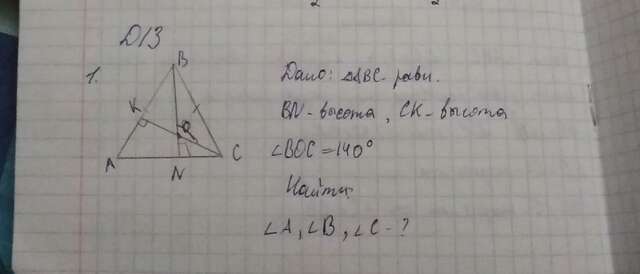 Д/З
1.
B
K
O
A
N
C
Дано: △ABC - равн.
BN - высота, CK - высота
∠BOC = 140°
Найти:
∠A, ∠B, ∠C - ?